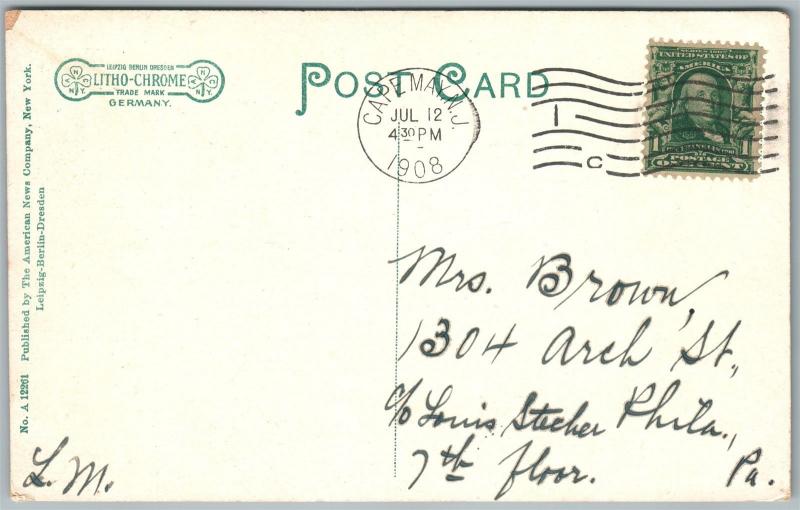 LEIPZIG BERLIN DRESDEN
LITHO-CHROME
TRADE MARK
GERMANY.
POST CARD
CAPE MAY, N.J.
JUL 12
4 30 PM
1908
1
C
SERIES 1902
UNITED STATES OF
AMERICA
POSTAGE
No. A 12261 Published by The American News Company, New York.
Leipzig-Berlin-Dresden
Mrs. Brown,
1304 Arch St.,
c/o Louis Stecher Phila.,
7th floor. Pa.
L. M.